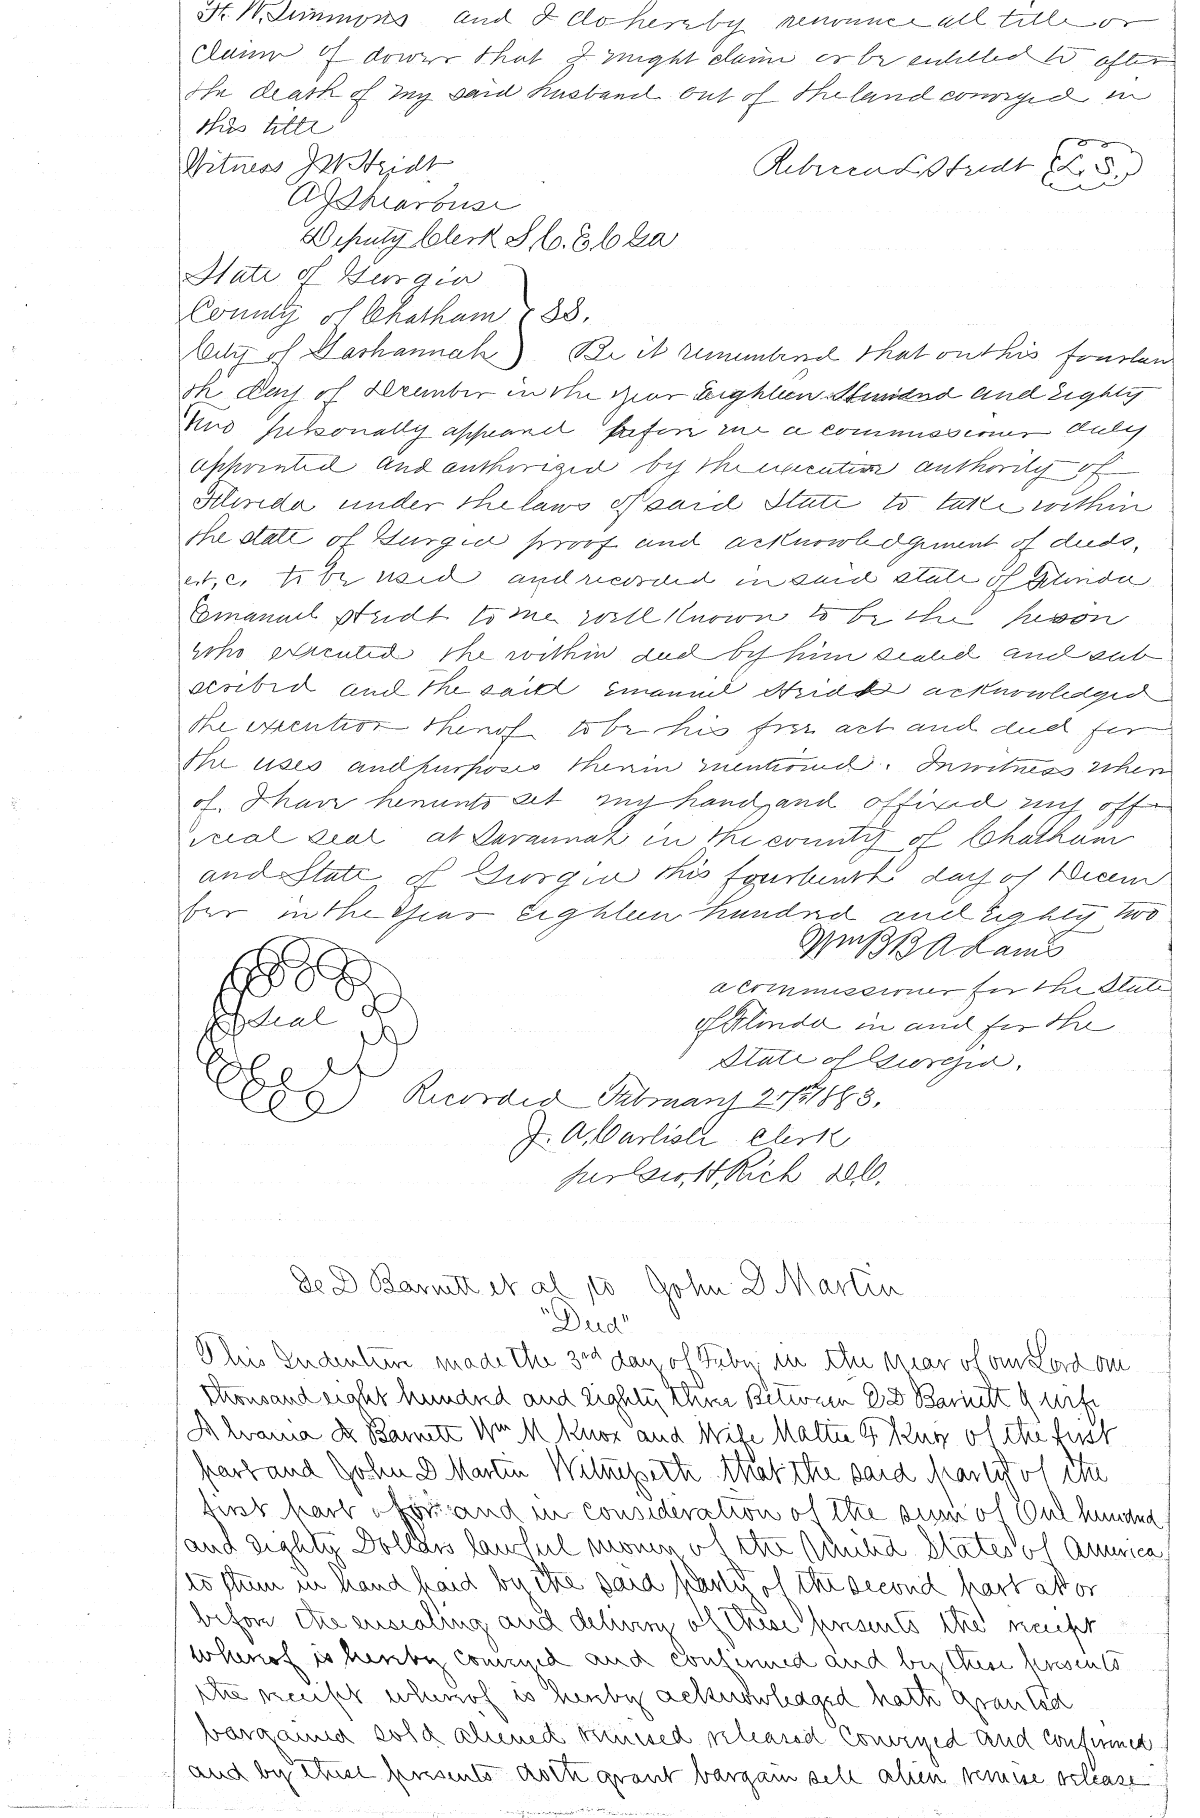 H. W. Simmons and I do hereby renounce all title or
claim of dower that I might claim or be entitled to after
the death of my said husband out of the land conveyed in
this title
Witness J W Heidt
Rebecca L Heidt (L. S.)
A J Shearouse
Deputy Clerk S. C. E. C Ga
State of Georgia
County of Chatham } SS.
City of Savhannah ) Be it remembered that on this fourteen
th day of December in the year Eighteen Hundred and Eighty
two personally appeared before me a commissioner duly
appointed and authorized by the executive authority of
Florida under the laws of said State to take within
the state of Georgia proof and acknowledgment of deeds,
ect, c. to be used and recorded in said state of Florida
Emanuel Heidt to me well known to be the person
who executed the within deed by him sealed and sub
scribed and the said Emanuel Heidt acknowledged
the execution thereof to be his free act and deed for
the uses and purposes therein mentioned. In witness where
of. I have hereunto set my hand and affixed my off
icial seal at Savannah in the county of Chatham
and State of Georgia this fourteenth day of Decem
ber in the year eighteen hundred and eighty two
Wm B B Adams
a commissioner for the State
of Florida in and for the
State of Georgia.
Seal
Recorded February 1883.
J. A. Carlisle Clerk
per Geo. H. Rich D.C.
De D Barnett et al to John D Martin
"Deed"
This Indenture made the 3rd day of Feby in the year of our Lord one
thousand eight hundred and eighty three Between D D Barnett & wife
A Barnett Wm M Knox and Wife Mattie F Knox of the first
part and John D Martin Witnesseth that the said party of the
first part for and in consideration of the sum of One hundred
and Eighty Dollars lawful money of the United States of America
to them in hand paid by the said party of the second part at or
before the ensealing and delivery of these presents the receipt
whereof is hereby conveyed and confirmed and by these presents
the receipt whereof is hereby acknowledged hath granted
bargained sold aliened remised released conveyed and confirmed
and by these presents doth grant bargain sell alien remise release